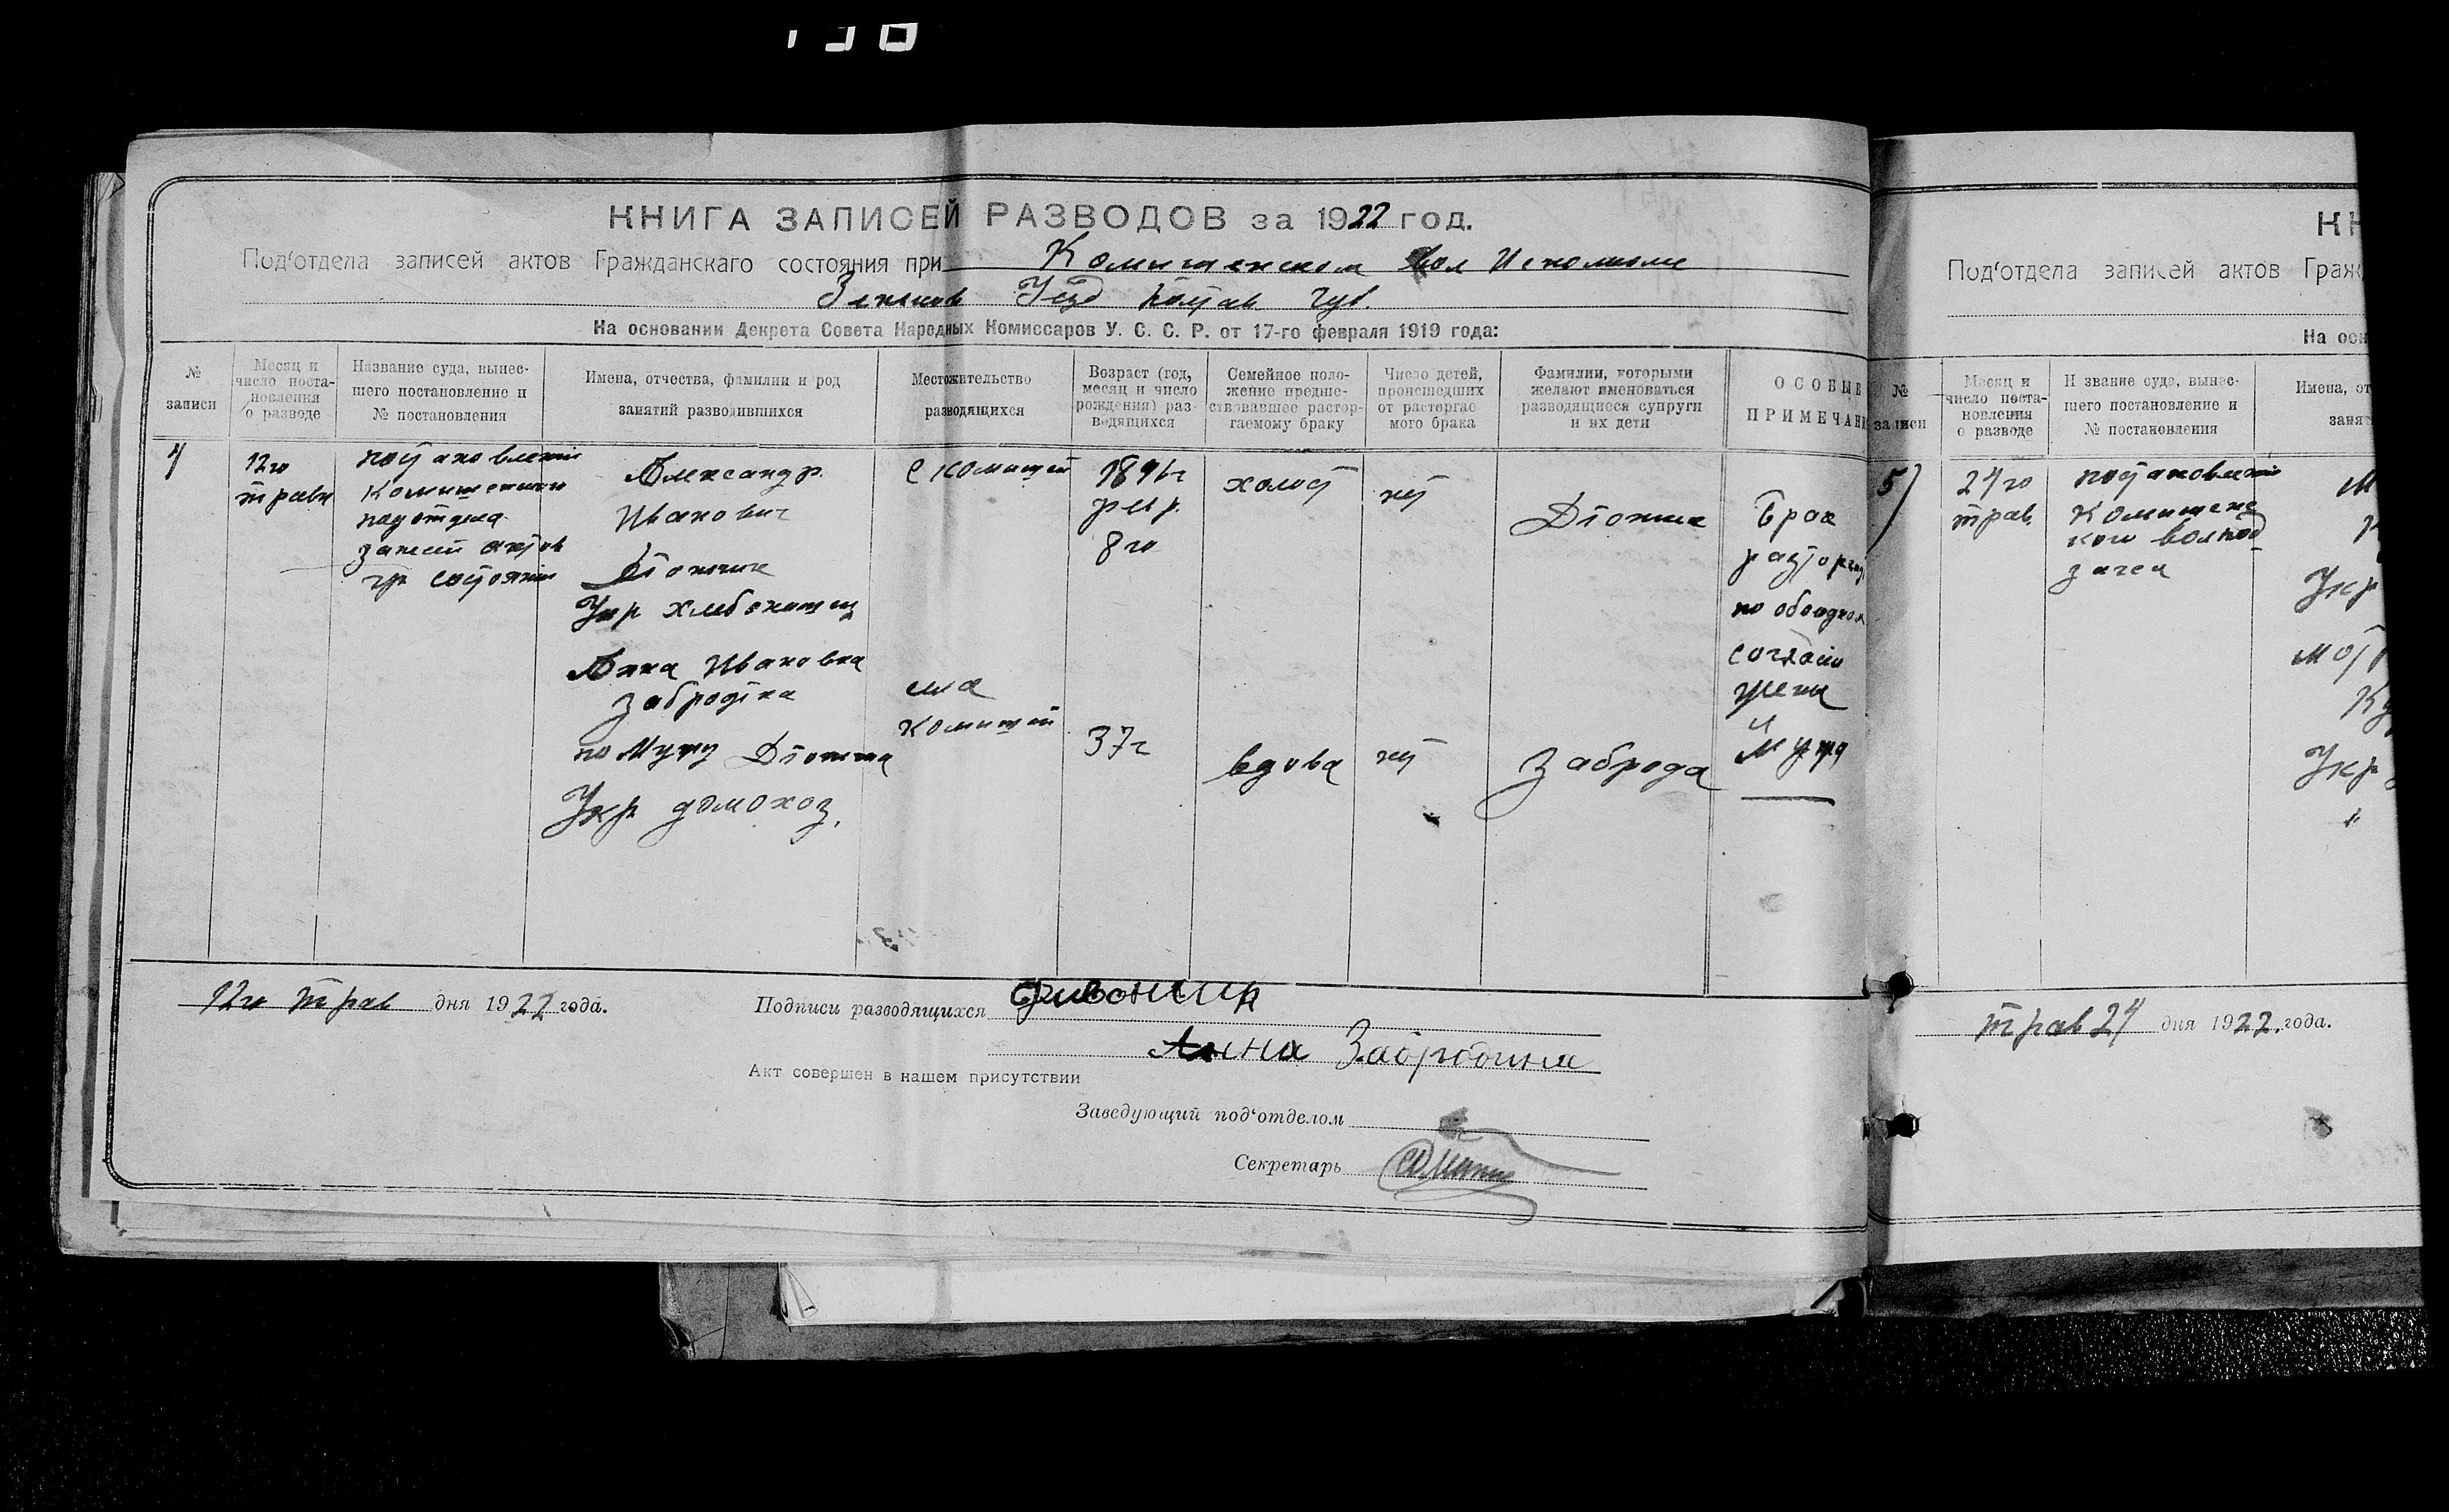 КНИГА ЗАПИСЕЙ РАЗВОДОВ за 1922 год.
Под‘отдела записей актов Гражданскаго состояния при Комишенском Вол Исполкоме
Зеньков Уезд Полтав Губ.
На основании Декрета Совета Народных Комиссаров У. С. С. Р. от 17-го февраля 1919 года:
№
записи
Месяц и
число поста-
новления
о разводе
Название суда, вынес-
шего постановление и
№ постановления
Имена, отчества, фамилии и род
занятий разводившихся
Местожительство
разводящихся
Возраст (год,
месяц и число
рождения) раз-
водящихся
Семейное поло-
жение предше-
ствовавшее растор-
гаемому браку
Число детей,
происшедших
от расторгае-
мого брака
Фамилии, которыми
желают именоваться
разводящиеся супруги
и их дети
ОСОБЫЕ
ПРИМЕЧАНИ
12го
травн
постановлений
Комишенского
подотдела
записей актов
гр состояния
Александр
Иванович
Укр хлебопашец
Анна Ивановна
Забродина
по Мужу
Укр домохоз.
с Комишей
села
Комишей
8го
37г
холост
вдова
нет
нет
Заброда
Брак
расторгнут
по обоюдном
согласию
жены
и
мужа
12го трав дня 1922 года.
Подписи разводящихся
Анна Забродина
Акт совершен в нашем присутствии
Заведующий под‘отделом
Секретарь
КН
Под‘отдела записей актов Граж
На осн
№
записи
Месяц и
число поста-
новления
о разводе
Н звание суда, вынес-
шего постановление и
№ постановления
Имена, от
занят
5)
24го
трав.
постановлений
Комишенс
кого волпод
загса
Укр
Укр
трав 24 дня 1922 года.